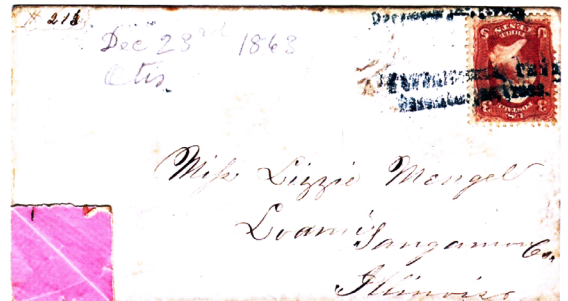 # 218
Dec 23rd 1863
Otis.
Miss Lizzie Mengel
Loami
Sangamon Co.
Illinois